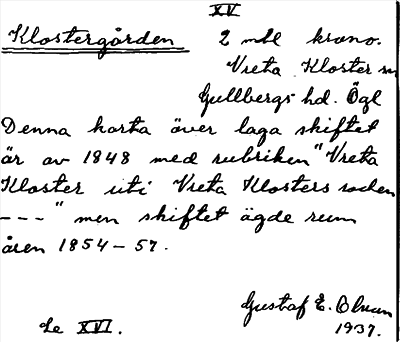 XV
Klostergården 2 mtl krono.
Vreta Kloster sn
Gullbergs hd. Ögl
Denna karta över laga skiftet
är av 1848 med rubriken "Vreta
Kloster uti Vreta Klosters socken
---" men skiftet ägde rum
åren 1854-57.
Gustaf E. Olsson
Se XVI. 1937.